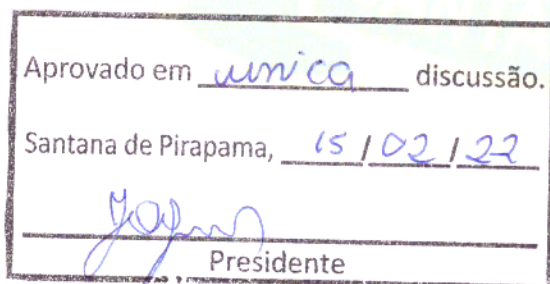 Aprovado em unica discussão.
Santana de Pirapama, 15 / 02 / 22
Presidente